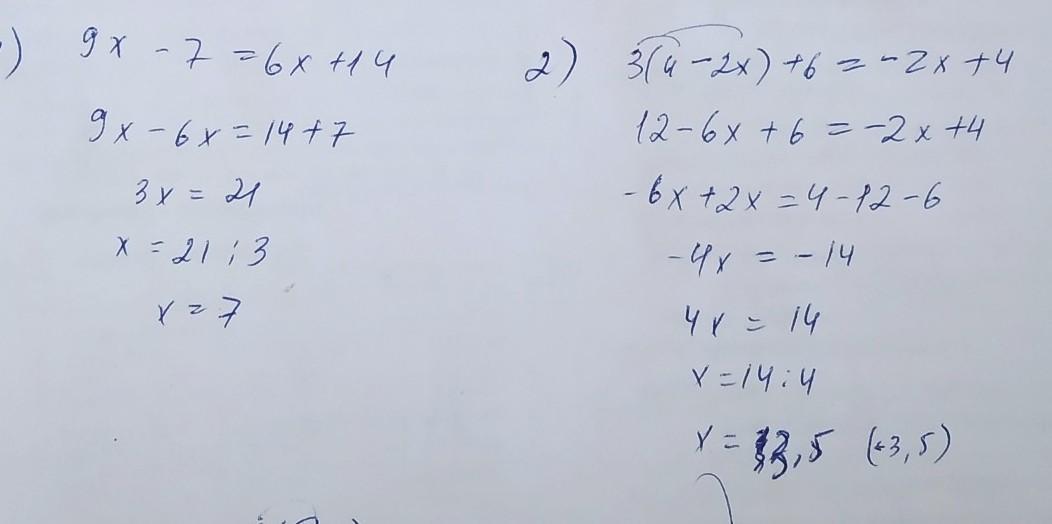 )
9x - 7 = 6x + 14
9x - 6x = 14 + 7
3x = 21
x = 21 : 3
x = 7
2) 3(4 - 2x) + 6 = -2x + 4
12 - 6x + 6 = -2x + 4
-6x + 2x = 4 - 12 - 6
-4x = -14
4x = 14
x = 14 : 4
x = 3,5 (-3,5)